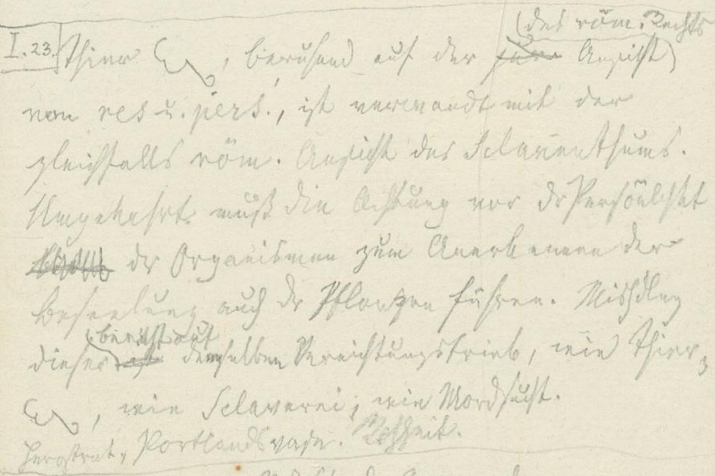 (des röm. Rechts
I. 23. Thier , beruhend auf der Ansicht)
von res u. pers., ist verwandt mit der
gleichfalls röm. Ansicht des Sclaventhums.
Umgekehrt muß die Achtung vor dr Persönlichkt
dr Organismen zum Anerkennen der
Beseelung auch dr Pflanzen führen. Mißhdlng
(beruht auf
dieser demselben Vernichtungstrieb, wie Thier
, wie Sclaverei; wie Mordsucht.
Herostrat, Portlandvase. Rohheit.